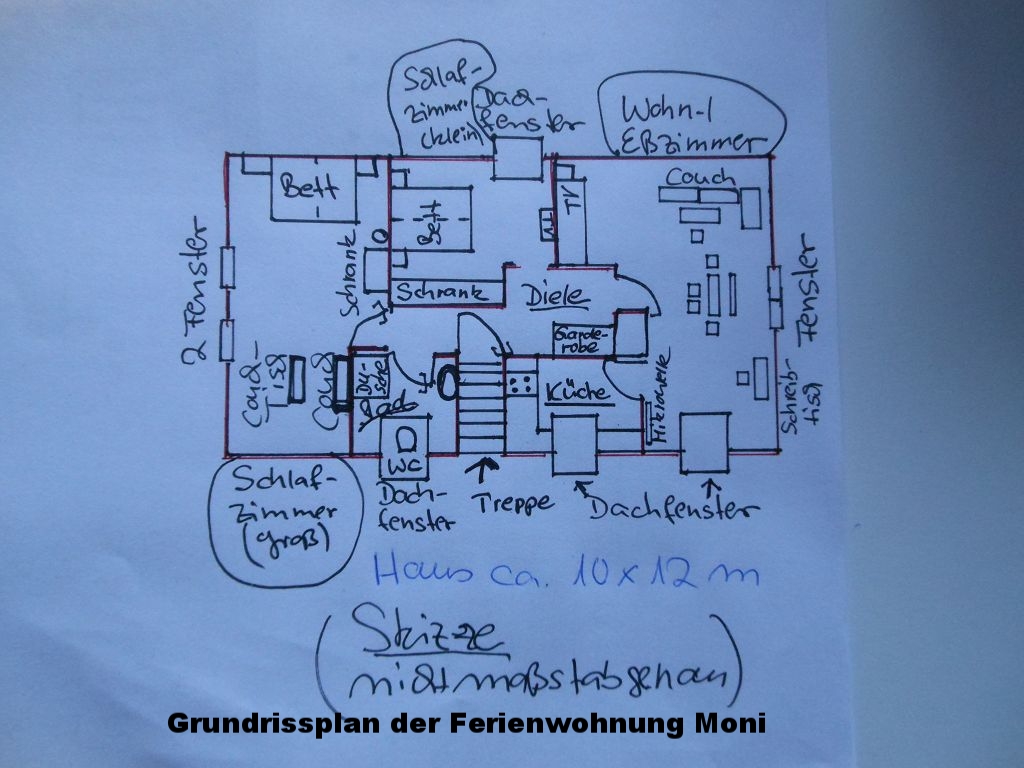 Schlaf-
zimmer
(klein)
Dach-
fenster
Wohn-/
Eßzimmer
Bett
Bett
TV
TV
Couch
2 Fenster
Schrank
Schrank
Diele
Fenster
Garde-
robe
Couch-
tisch
Couch
Du-
sche
Bad
Küche
Mikrowelle
Schreib-
tisch
WC
Schlaf-
zimmer
(groß)
Dach-
fenster
Treppe
Dachfenster
Haus ca. 10 x 12 m
(Skizze
nicht maßstabgenau)
Grundrissplan der Ferienwohnung Moni